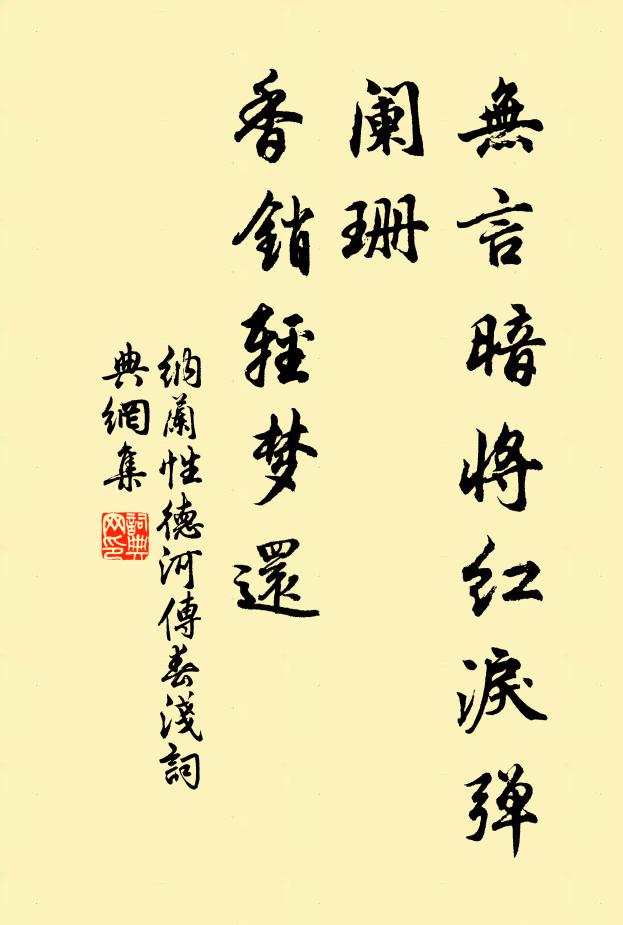 無言暗将红淚弹
阑珊
香銷輕梦還
纳蘭性德河傳春淺詞
典網集
詞典
网印